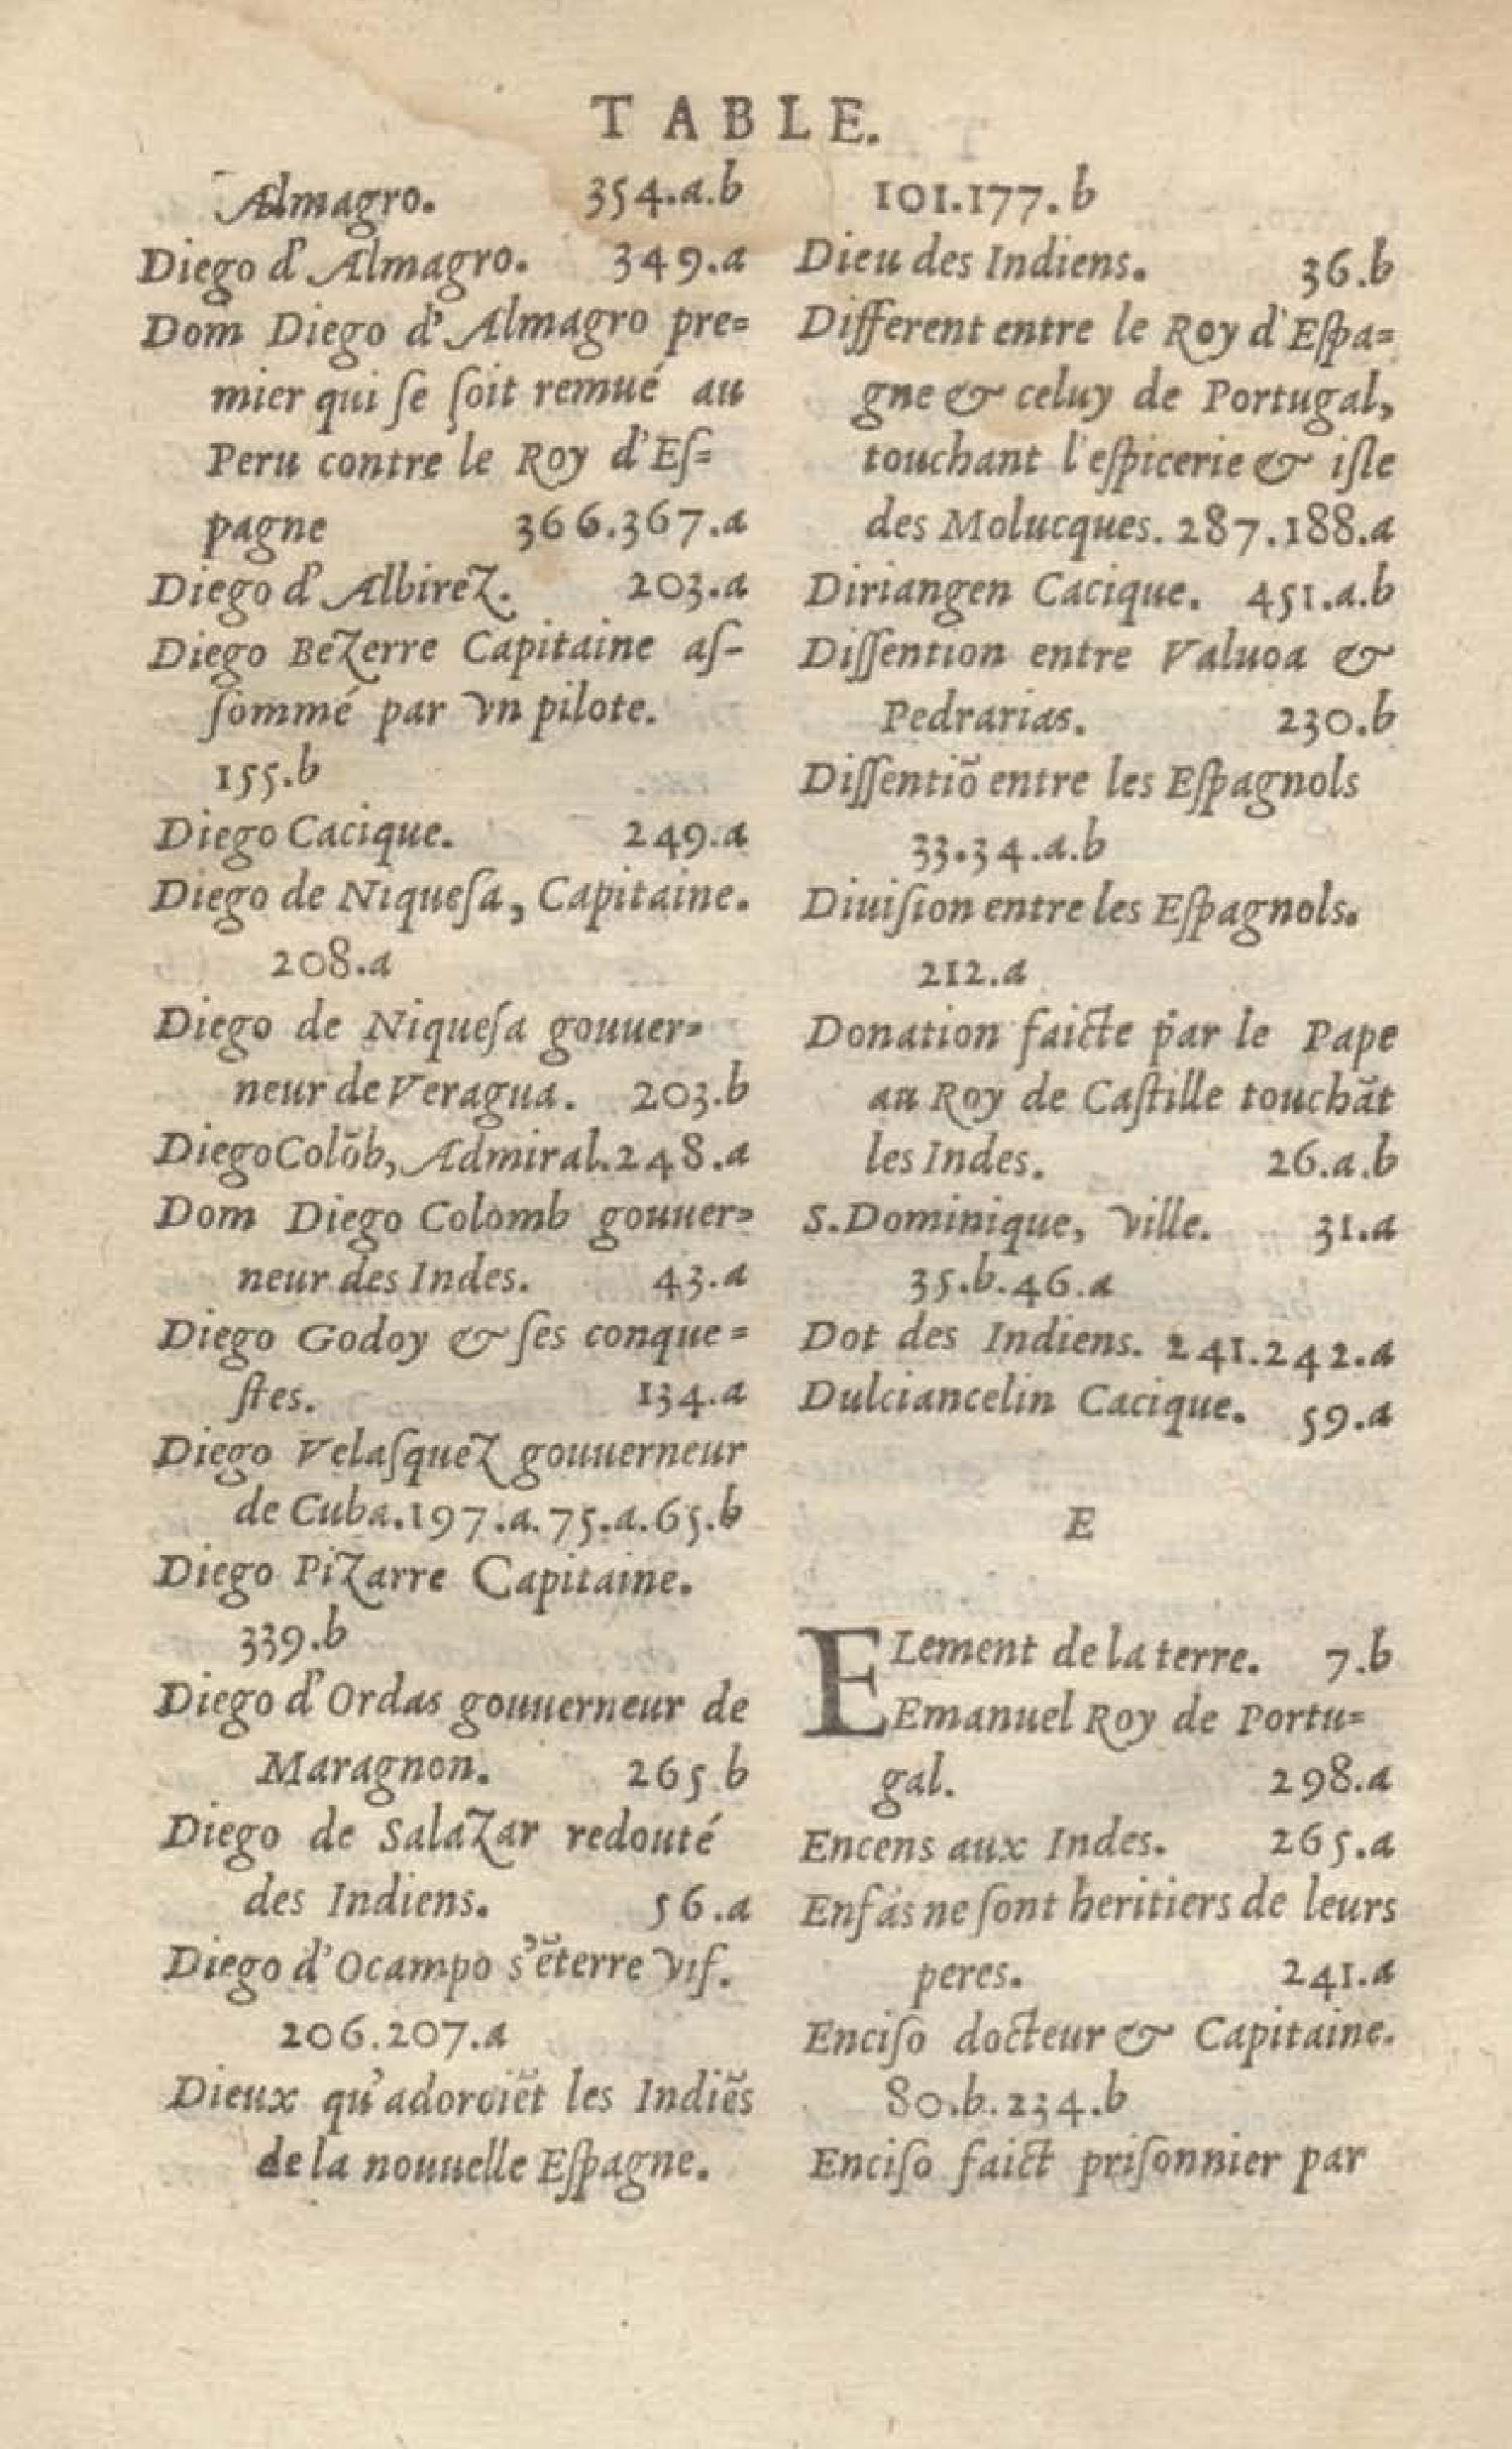 TABLE.
Almagro. 354.a.b
Diego d'Almagro. 349.a
Dom Diego d'Almagro pre=
mier qui se soit remué au
Peru contre le Roy d'Eſ=
pagne 366.367.a
Diego d'Albirez. 203.a
Diego Bezerre Capitaine aſ-
ſommé par vn pilote.
155.b
Diego Cacique. 249.a
Diego de Niqueſa, Capitaine.
208.a
Diego de Niqueſa gouuer=
neur de Veragua. 203.b
Diego Colõb, Admiral. 248.a
Dom Diego Colomb gouuer=
neur des Indes. 43.a
Diego Godoy & ſes conque=
ſtes. 134.a
Diego Velaſquez gouuerneur
de Cuba. 197.a. 75.a. 65.b
Diego Pizarre Capitaine.
339.b
Diego d'Ordas gouuerneur de
Maragnon. 265 b
Diego de Salazar redouté
des Indiens. 56.a
Diego d'Ocampo s'ẽterre vif.
206.207.a
Dieux qu'adoroiẽt les Indiẽs
de la nouuelle Eſpagne.
101.177.b
Dieu des Indiens. 36.b
Different entre le Roy d'Eſpa=
gne & celuy de Portugal,
touchant l'eſpicerie & iſle
des Molucques. 287.188.a
Diriangen Cacique. 451.a.b
Diſſention entre Valuoa &
Pedrarias. 230.b
Diſſentiõ entre les Eſpagnols
33.34.a.b
Diuiſion entre les Eſpagnols.
212.a
Donation faicte par le Pape
au Roy de Caſtille touchãt
les Indes. 26.a.b
S. Dominique, ville. 31.a
35.b.46.a
Dot des Indiens. 241.242.a
Dulciancelin Cacique. 59.a
E
ELement de la terre. 7.b
Emanuel Roy de Portu=
gal. 298.a
Encens aux Indes. 265.a
Enfãs ne ſont heritiers de leurs
peres. 241.a
Enciſo docteur & Capitaine.
80.b.234.b
Enciſo faict priſonnier par